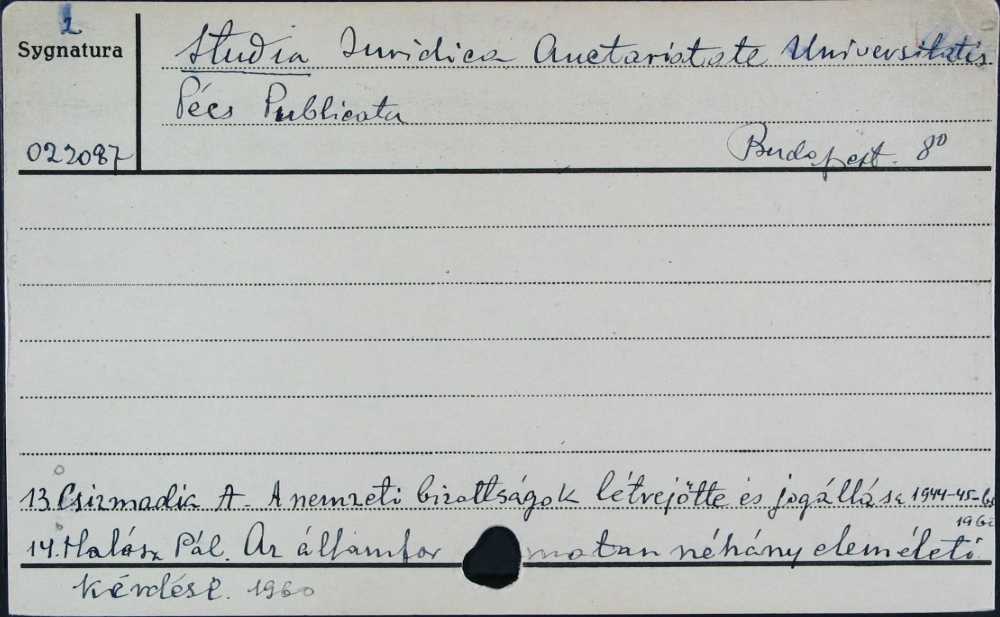 1
Sygnatura
Studia Juridica Auctaritate Universitatis
Pécs Publicata
022087
Budapest. 8⁰
13. Csizmadia A. A nemzeti bizottságok létrejötte és jogállása 1944-45-
1960
14. Halász Pál. Az államfor matan néhány elméleti
kérdése. 1960